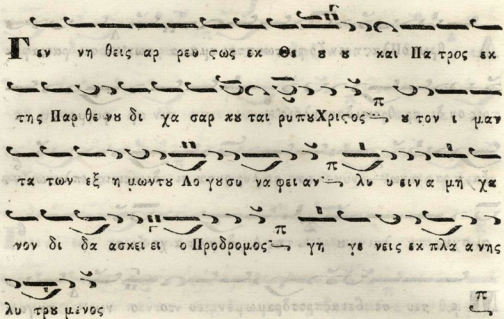 Γεν νη θεις αρ ρευ τως εκ Θε ȣ ȣ και Πα τρος εκ
της Παρ θε νȣ δι χα σαρ κȣ ται ρυ πȣ Χριςος ȣ τον ι μαν
τα των εξ η μων τȣ Λο γȣ συ να φει αν λυ υ ειν α μη χα
νον δι δα ασκει ει ο Προδρομος γη γε νεις εκ πλα α νης
λυ τρȣ μενος